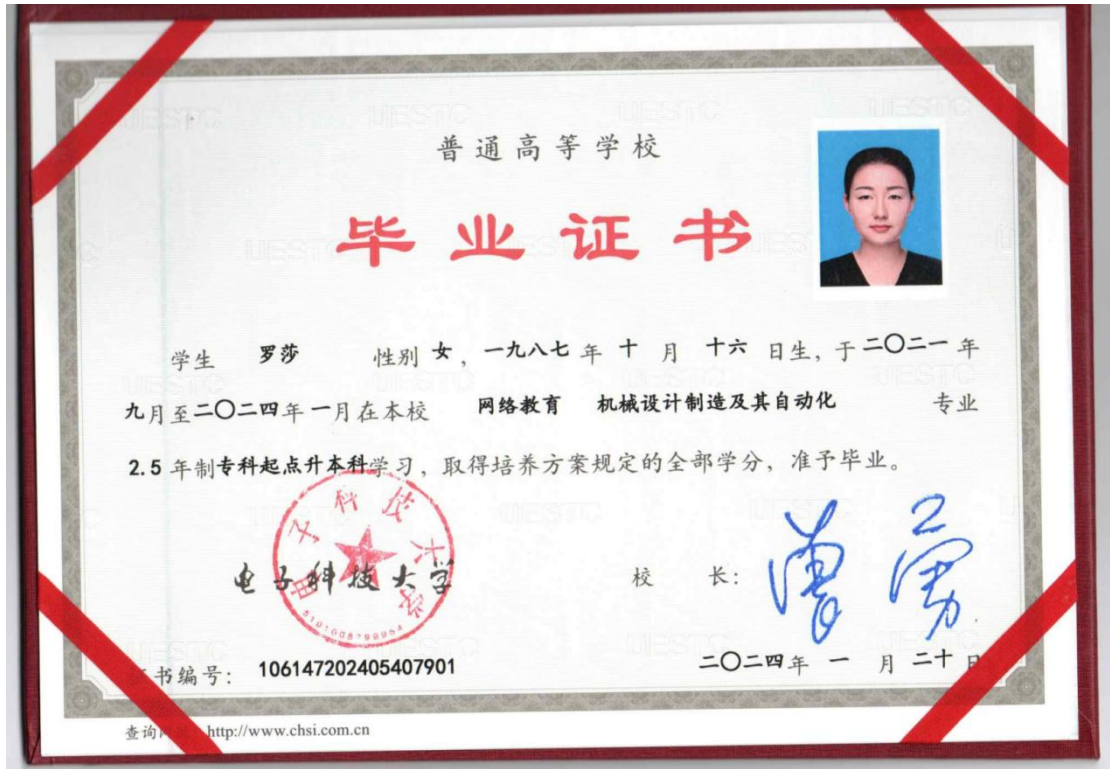 普通高等学校
毕业证书
学生 罗莎 性别 女，一九八七 年 十 月 十六 日生，于 二〇二一 年
九月至二〇二四年 一月在本校 网络教育 机械设计制造及其自动化 专业
2.5 年制专科起点升本科学习，取得培养方案规定的全部学分，准予毕业。
电子科技大学
电子科技大学
校 长：曾勇
书编号：106147202405407901
二〇二四年 一 月 二十 日
查询 http://www.chsi.com.cn
UESTC